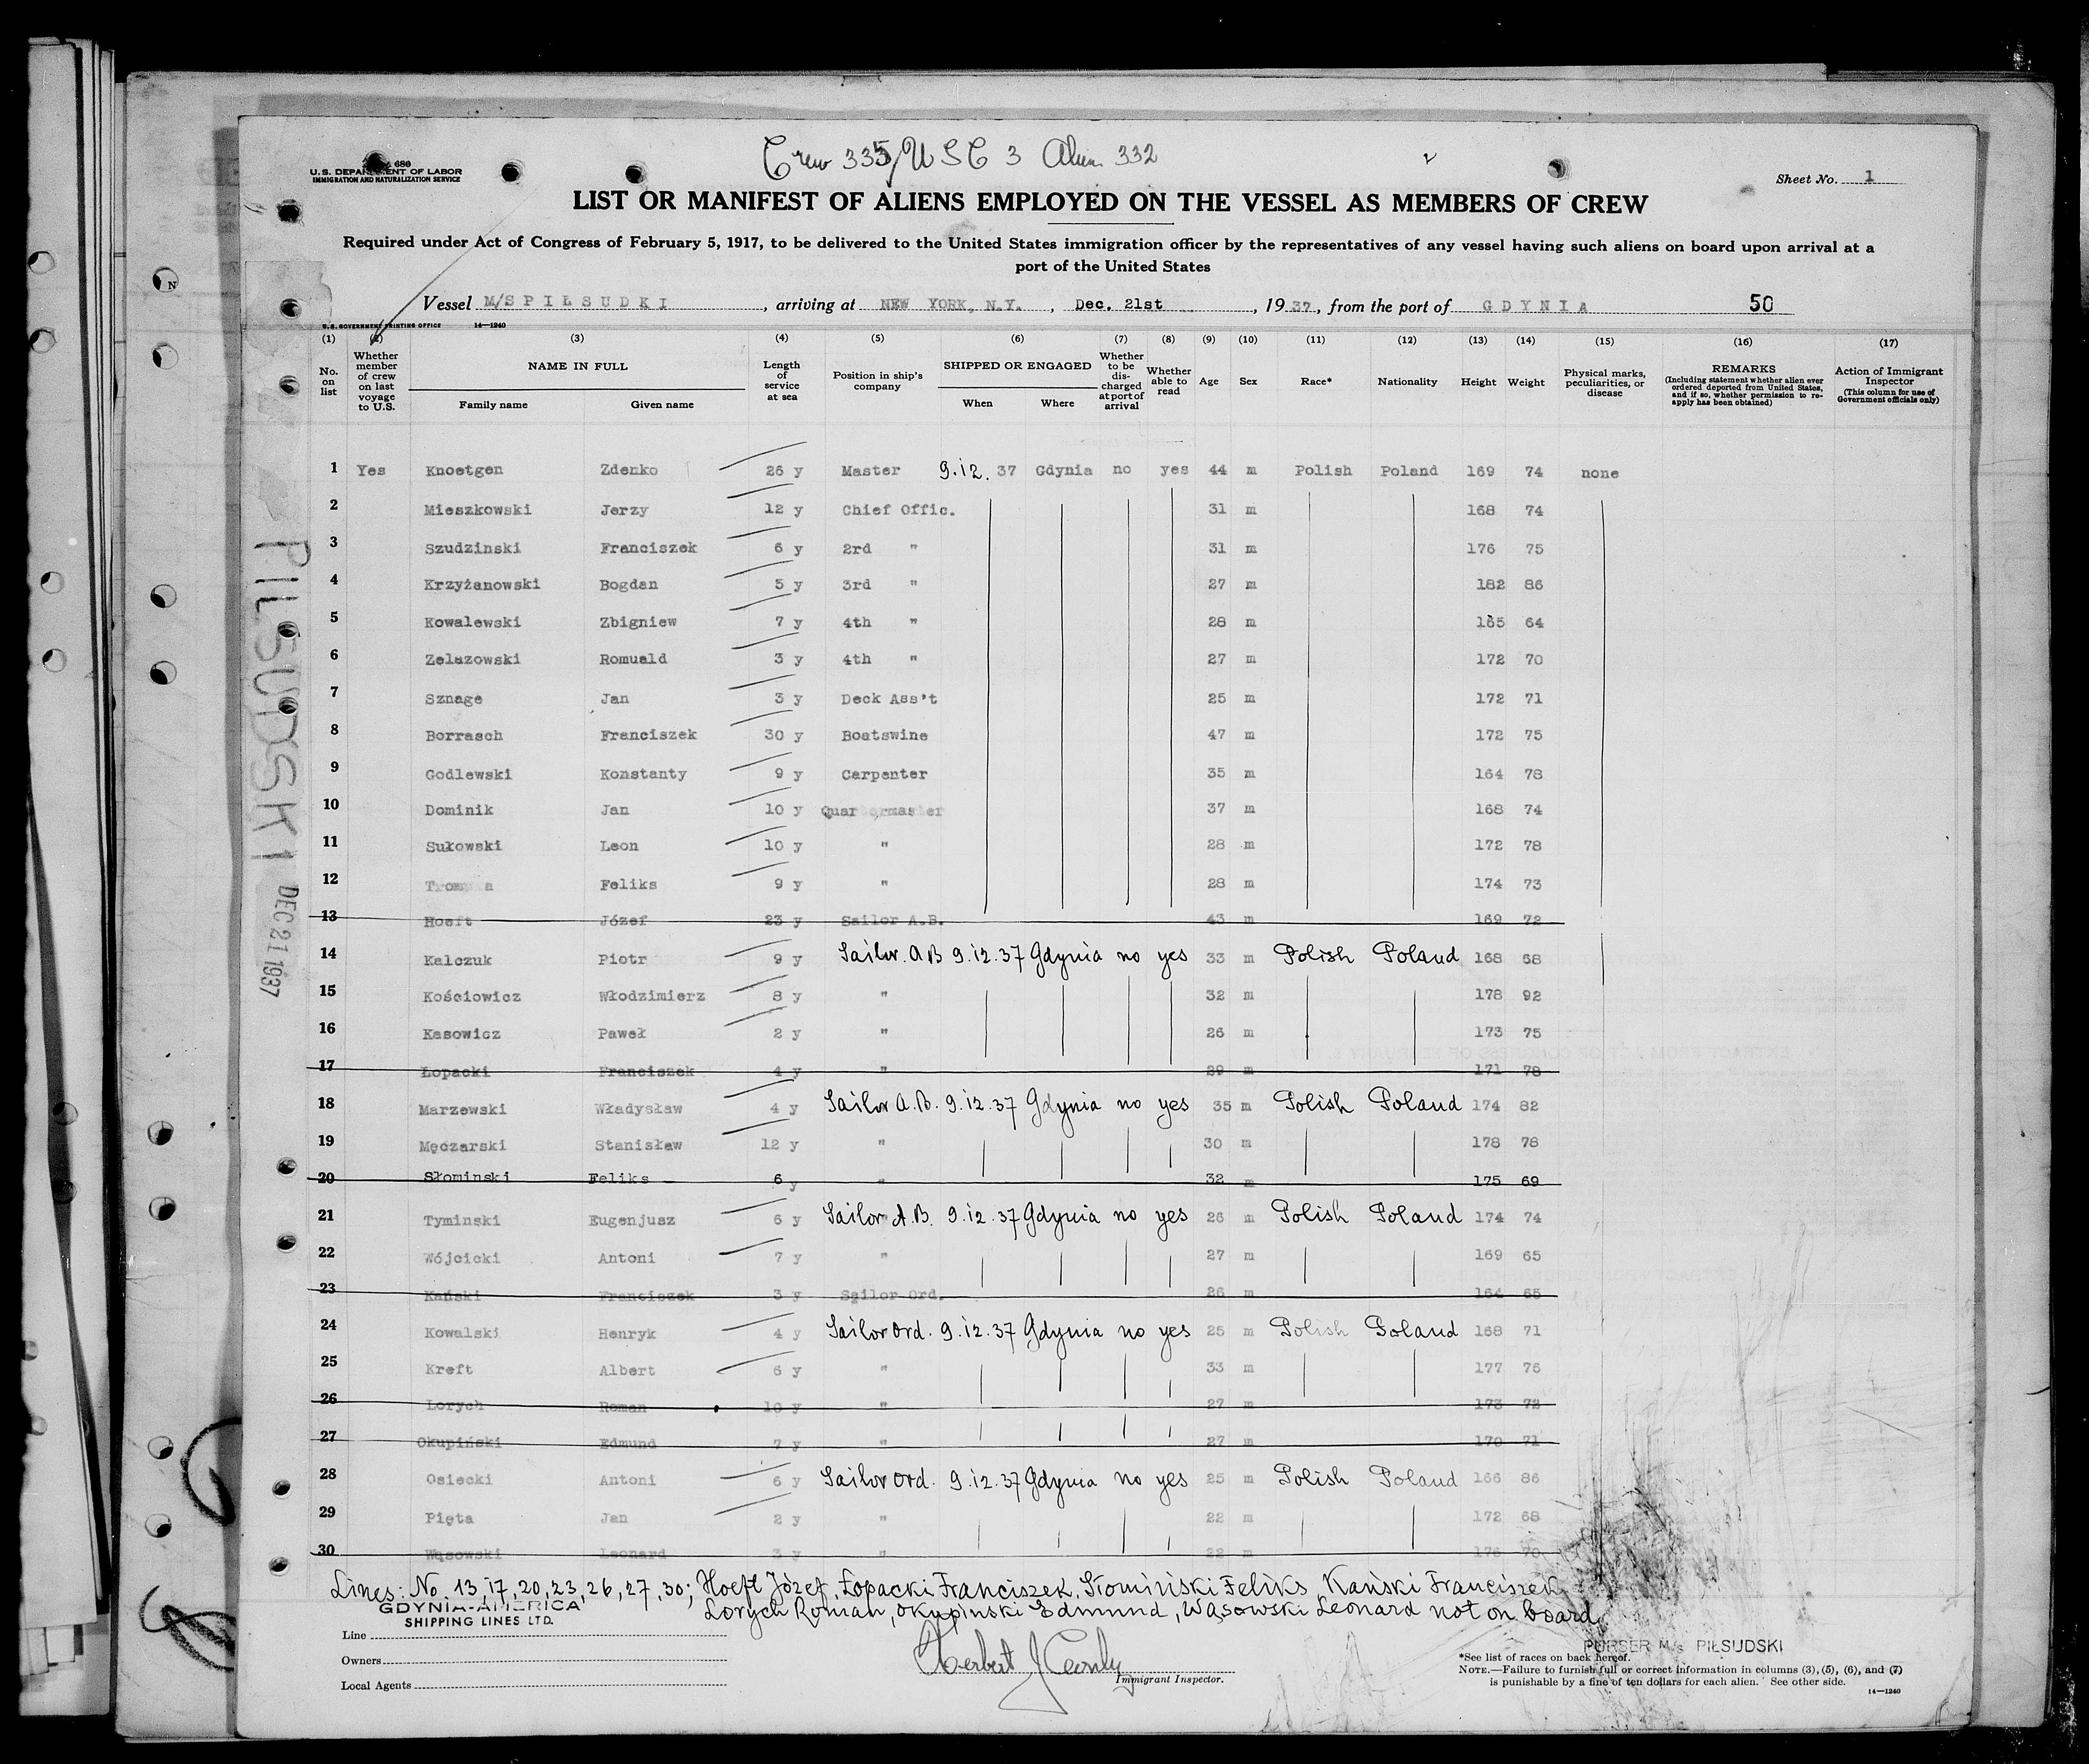 Crew 335/USC 3 Alien 332
680
U.S. DEPARTMENT OF LABOR
IMMIGRATION AND NATURALIZATION SERVICE
Sheet No. 1
LIST OR MANIFEST OF ALIENS EMPLOYED ON THE VESSEL AS MEMBERS OF CREW
Required under Act of Congress of February 5, 1917, to be delivered to the United States immigration officer by the representatives of any vessel having such aliens on board upon arrival at a
port of the United States
Vessel M/S PIŁSUDKI, arriving at NEW YORK, N.Y., Dec. 21st, 1937, from the port of GDYNIA 50
U.S. GOVERNMENT PRINTING OFFICE 14—1240
(1) (2) (3) (4) (5) (6) (7) (8) (9) (10) (11) (12) (13) (14) (15) (16) (17)
No. on list
Whether member of crew on last voyage to U.S.
NAME IN FULL
Family name Given name
Length of service at sea
Position in ship's company
SHIPPED OR ENGAGED
When Where
Whether to be discharged at port of arrival
Whether able to read
Age
Sex
Race*
Nationality
Height
Weight
Physical marks, peculiarities, or disease
REMARKS
(Including statement whether alien ever ordered deported from United States, and if so, whether permission to reapply has been obtained)
Action of Immigrant Inspector
(This column for use of Government officials only)
1 Yes Knoetgen Zdenko 26 y Master 9.12. 37 Gdynia no yes 44 m Polish Poland 169 74 none
2 Mieszkowski Jerzy 12 y Chief Offic. 31 m 168 74
3 Szudzinski Franciszek 6 y 2rd " 31 m 176 75
4 Krzyżanowski Bogdan 5 y 3rd " 27 m 182 86
5 Kowalewski Zbigniew 7 y 4th " 28 m 165 64
6 Zelazowski Romuald 3 y 4th " 27 m 172 70
7 Sznage Jan 3 y Deck Ass't 25 m 172 71
8 Borrasch Franciszek 30 y Boatswine 47 m 172 75
9 Godlewski Konstanty 9 y Carpenter 35 m 164 78
10 Dominik Jan 10 y Quartermaster 37 m 168 74
11 Sułowski Leon 10 y " 28 m 172 78
12 Feliks 9 y " 28 m 174 73
13 Hoeft Józef 23 y Sailor A.B. 43 m 169 72
14 Kalczuk Piotr 9 y Sailor A B 9.12.37 Gdynia no yes 33 m Polish Poland 168 68
15 Kościowicz Włodzimierz 8 y " 32 m 178 92
16 Kasowicz Paweł 2 y " 26 m 173 75
17 Łopacki Franciszek 4 y " 29 m 171 78
18 Marzewski Władysław 4 y Sailor A.B. 9.12.37 Gdynia no yes 35 m Polish Poland 174 82
19 Męczarski Stanisław 12 y " 30 m 178 78
20 Słominski Feliks 6 y " 32 m 175 69
21 Tyminski Eugenjusz 6 y Sailor A.B. 9.12.37 Gdynia no yes 26 m Polish Poland 174 74
22 Wójcicki Antoni 7 y " 27 m 169 65
23 Kański Franciszek 3 y Sailor Ord. 26 m 164 65
24 Kowalski Henryk 4 y Sailor Ord. 9.12.37 Gdynia no yes 25 m Polish Poland 168 71
25 Kreft Albert 6 y " 33 m 177 76
26 Lorych Roman 10 y " 27 m 173 72
27 Okupiński Edmund 7 y " 27 m 170 71
28 Osiecki Antoni 6 y Sailor Ord. 9.12.37 Gdynia no yes 25 m Polish Poland 166 86
29 Pięta Jan 2 y " 22 m 172 68
30 Wąsowski Leonard 3 y " 22 m 176 70
Lines: No. 13, 17, 20, 23, 26, 27, 30; Hoeft Józef, Łopacki Franciszek, Słomiński Feliks, Kański Franciszek,
Lorych Roman, Okupinski Edmund, Wąsowski Leonard not on board
GDYNIA-AMERICA
SHIPPING LINES LTD.
Line
Owners
Local Agents
Immigrant Inspector.
PURSER M/s PIŁSUDSKI
*See list of races on back hereof.
NOTE.—Failure to furnish full or correct information in columns (3), (5), (6), and (7)
is punishable by a fine of ten dollars for each alien. See other side.
14—1240
PILSUDSKI DEC 21 1937